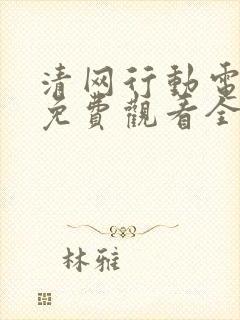 清网行動電
免費觀看全
林雅